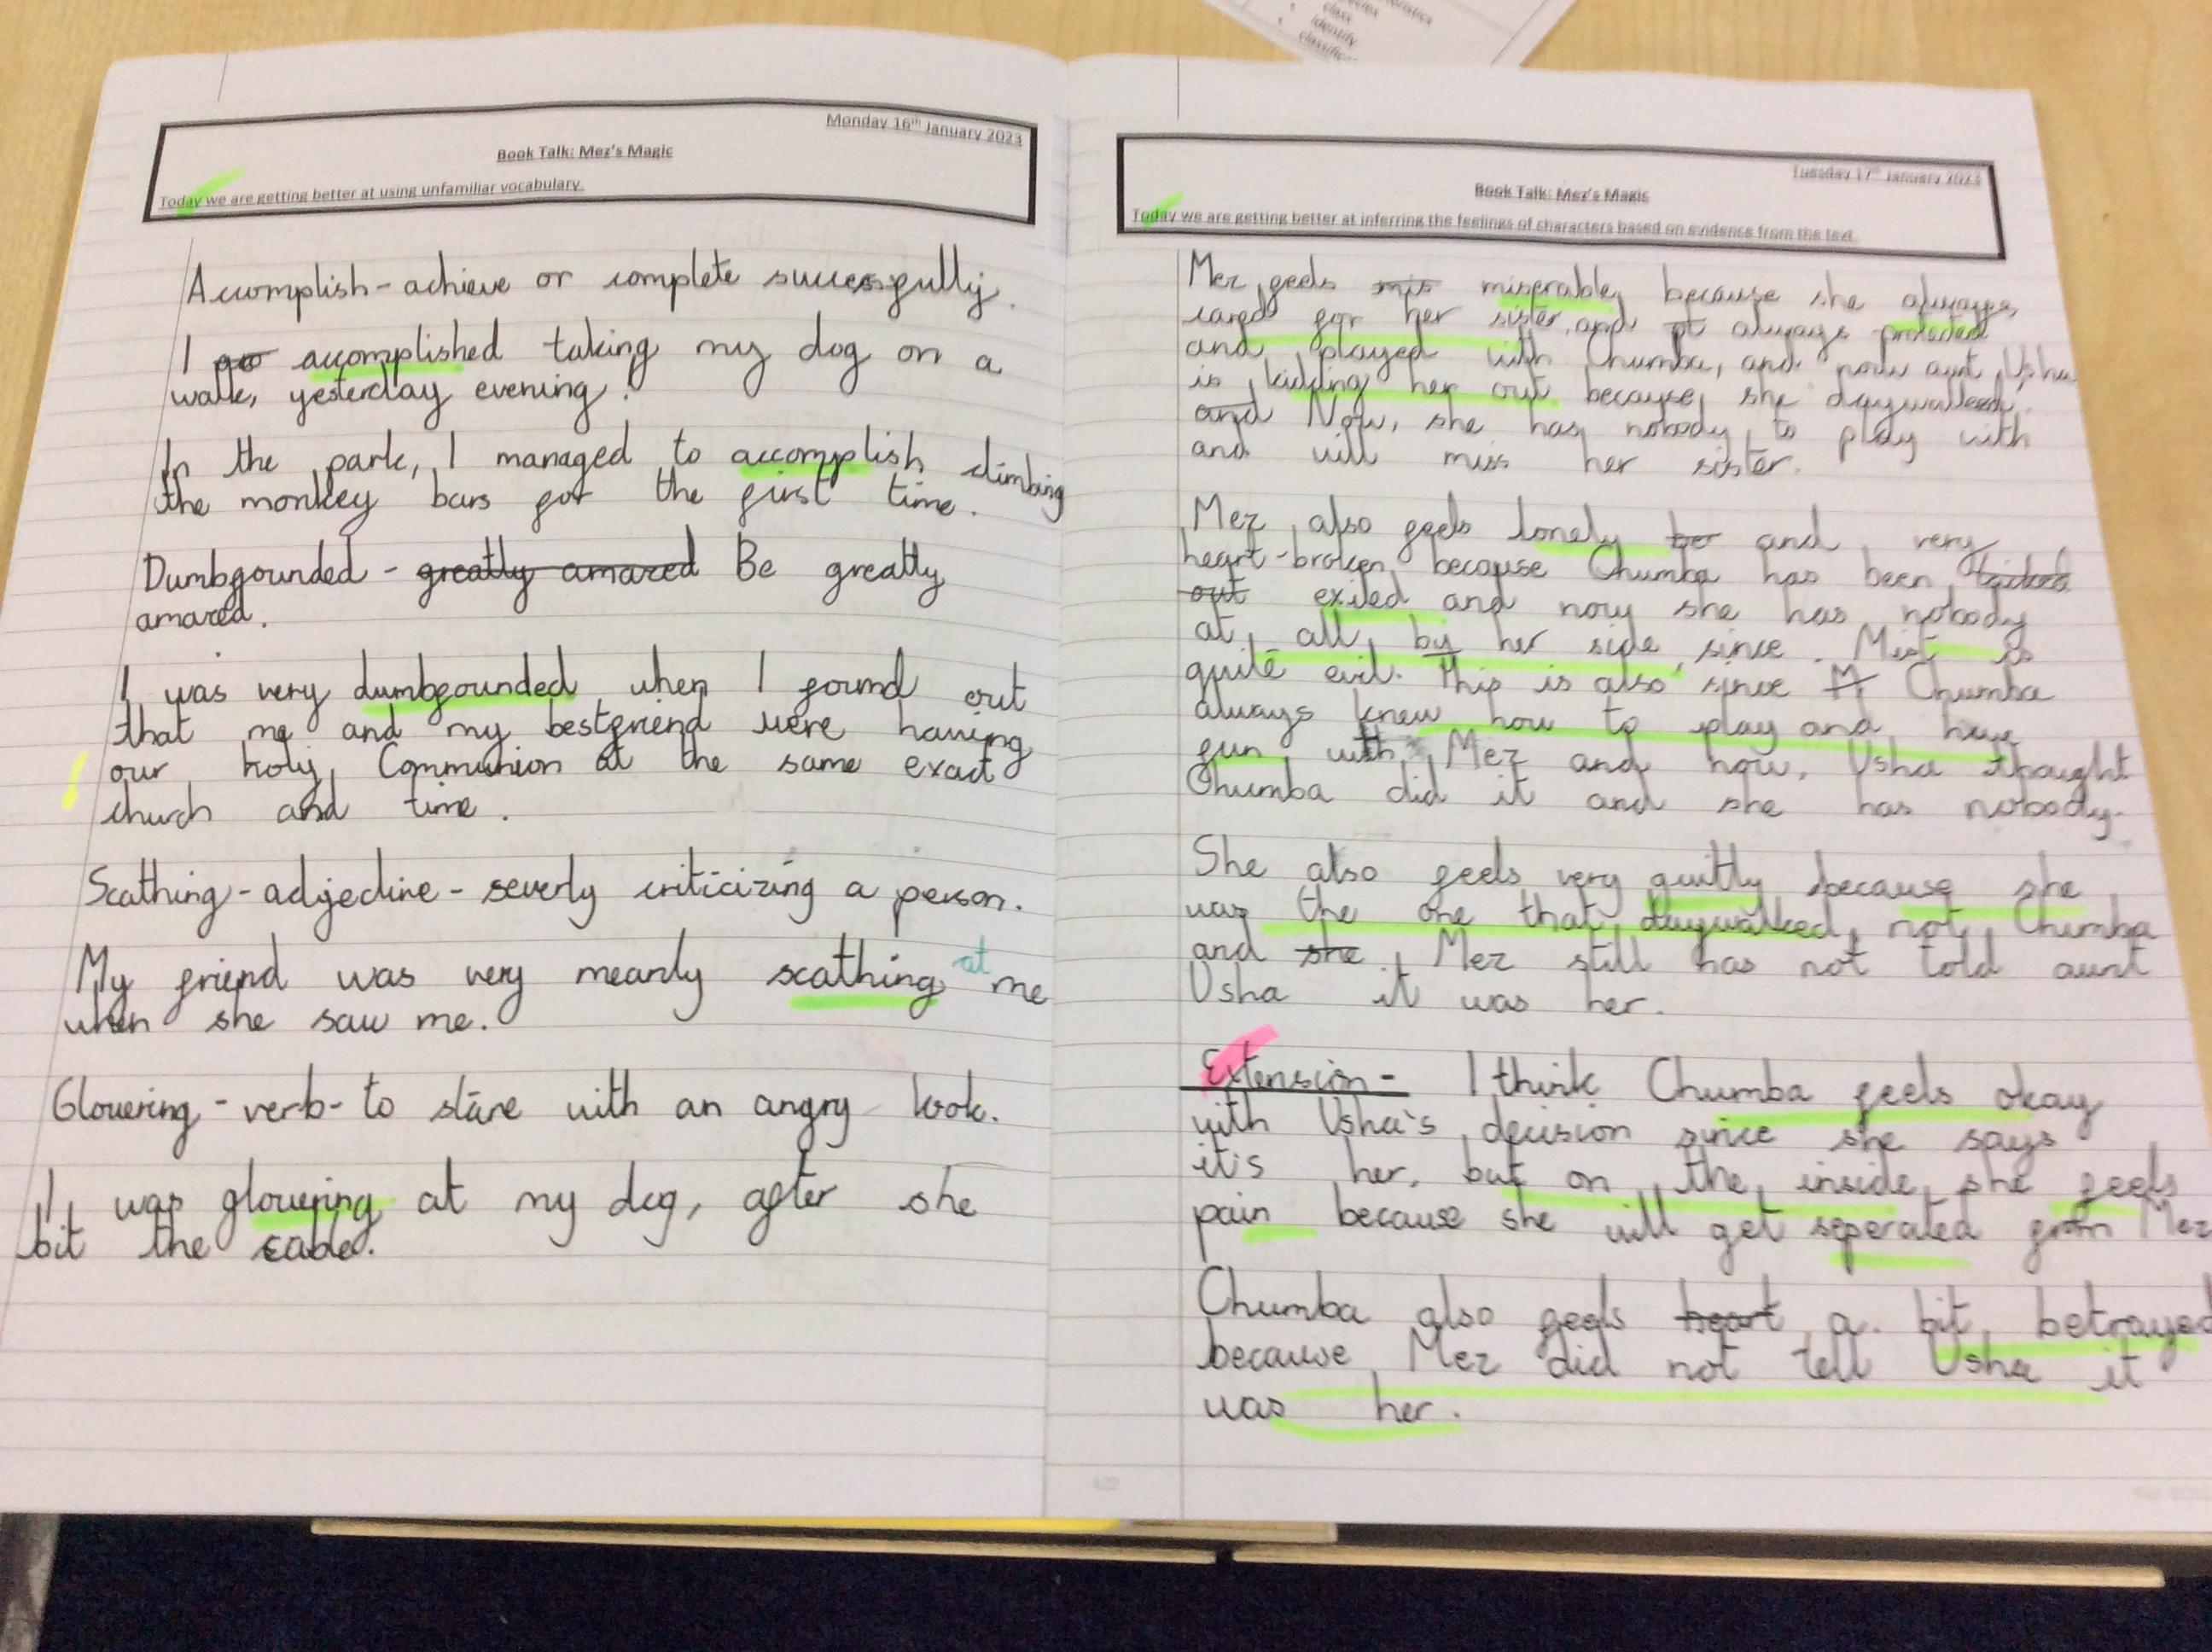 species
class
identify
Monday 16th January 2023
Book Talk: Mez's Magic
Today we are getting better at using unfamiliar vocabulary.
Accomplish - achieve or complete successfully.
I accomplished taking my dog on a
walk, yesterday evening.
In the park, I managed to accomplish climbing
the monkey bars for the first time.
Dumbfounded - greatly amazed Be greatly
amazed.
I was very dumbfounded when I found out
that me and my bestfriend were having
our holy Communion at the same exact
church and time.
Scathing - adjective - severly criticizing a person.
My friend was very meanly scathing at me
when she saw me.
Glowering - verb - to stare with an angry look.
I was glowering at my dog, after she
bit the cable.
Tuesday 17th January 2023
Book Talk: Mez's Magic
Today we are getting better at inferring the feelings of characters based on evidence from the text.
Mez feels mis miserable because she always
cared for her sister and always
and played with Chumba, and now aunt Usha
is kicking her out because she daywalked.
and Now, she has nobody to play with
and will miss her sister.
Mez also feels lonely be and very
heart-broken because Chumba has been kicked
out exiled and now she has nobody
at all by her side since Mist is
quite evil. This is also since M Chumba
always knew how to play and have
fun with Mez and now, Usha thought
Chumba did it and she has nobody.
She also feels very guilty because she
was the one that daywalked, not Chumba
and she Mez still has not told aunt
Usha it was her.
Extension - I think Chumba feels okay
with Usha's decision since she says
it's her, but on the inside she feels
pain because she will get seperated from Mez
Chumba also feels heart a bit betrayed
because Mez did not tell Usha it
was her.